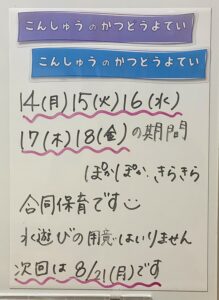 こんしゅう の かつどうよてい
こんしゅう の かつどうよてい
14(月)15(火)16(水)
17(木)18(金)の期間
ぽかぽか・きらきら
合同保育です
水遊びの用意はいりません
次回は 8/21(月)です